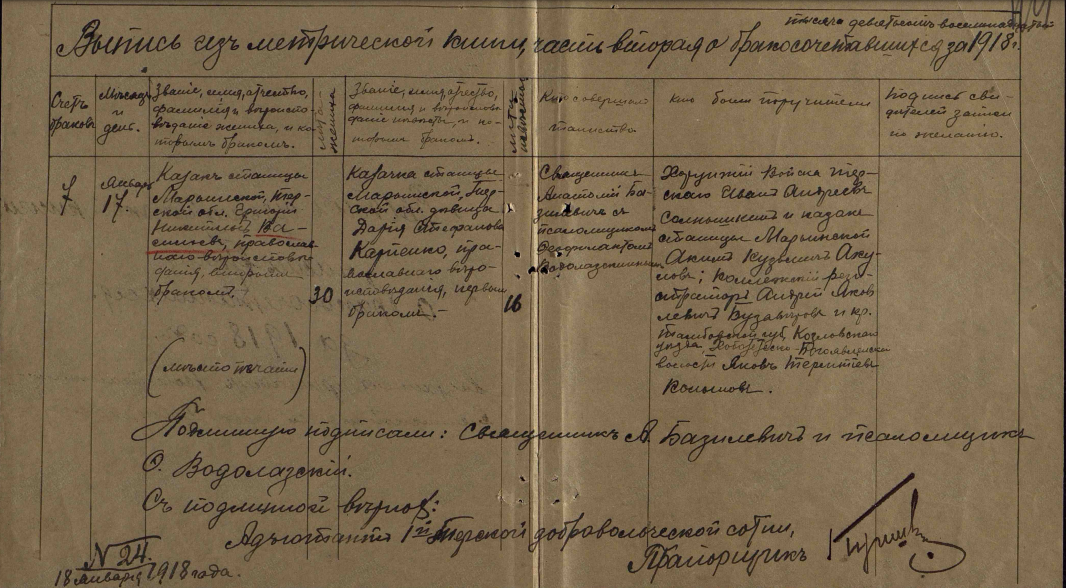 тысяча девятьсот восемнадцатый
Выпись изъ метрической книги, часть вторая о бракосочетавшихся за 1918 г.
Счетъ браковъ
Мѣсяцъ и день.
Званіе, имя, отчество,
фамилія и вѣроиспо-
вѣданіе жениха, и ко-
торымъ бракомъ.
Лѣта жениха
Званіе, имя, отчество,
фамилія и вѣроиспов
даніе невѣсты, и ко-
торымъ бракомъ.
Лѣта невѣсты
Кто совершалъ
таинство
кто были поручители
Подпись сви-
дѣтелей записи
по желанію.
7
Январь
17
Казакъ станицы
Марьинской, Тер-
ской обл. Григорій
Никитинъ Ва-
сильевъ, православ
наго вѣроисповѣ
данія, вторымъ
бракомъ.
30
Казачка станицы
Марьинской, Тер-
ской обл. дѣвица
Дарія Стефанова
Карпенко, пра-
вославнаго вѣро-
исповѣданія, первымъ
бракомъ.
16
Священникъ
Анатолій Ба-
зилевичъ съ
псаломщикомъ
Водолазскимъ
Хорунжій Войска Тер-
скаго Иванъ Андреевъ
и казакъ
станицы Марьинской
Акимъ Кузьмичъ Аку-
ловъ; Коллежскій реги-
страторъ Андрей Яков
левичъ и кр.
Тамбовской губ. Козловскаго
уѣзда Богоявленской
волости Яковъ Терентьевъ
(мѣсто печати)
Подлинную подписали: Священникъ А. Базилевичъ и псаломщикъ
О. Водолазскій.
Съ подлинной вѣрно:
Адъютантъ 1ой Терской добровольческой сотни,
Прапорщикъ
N 24.
18 января 1918 года.